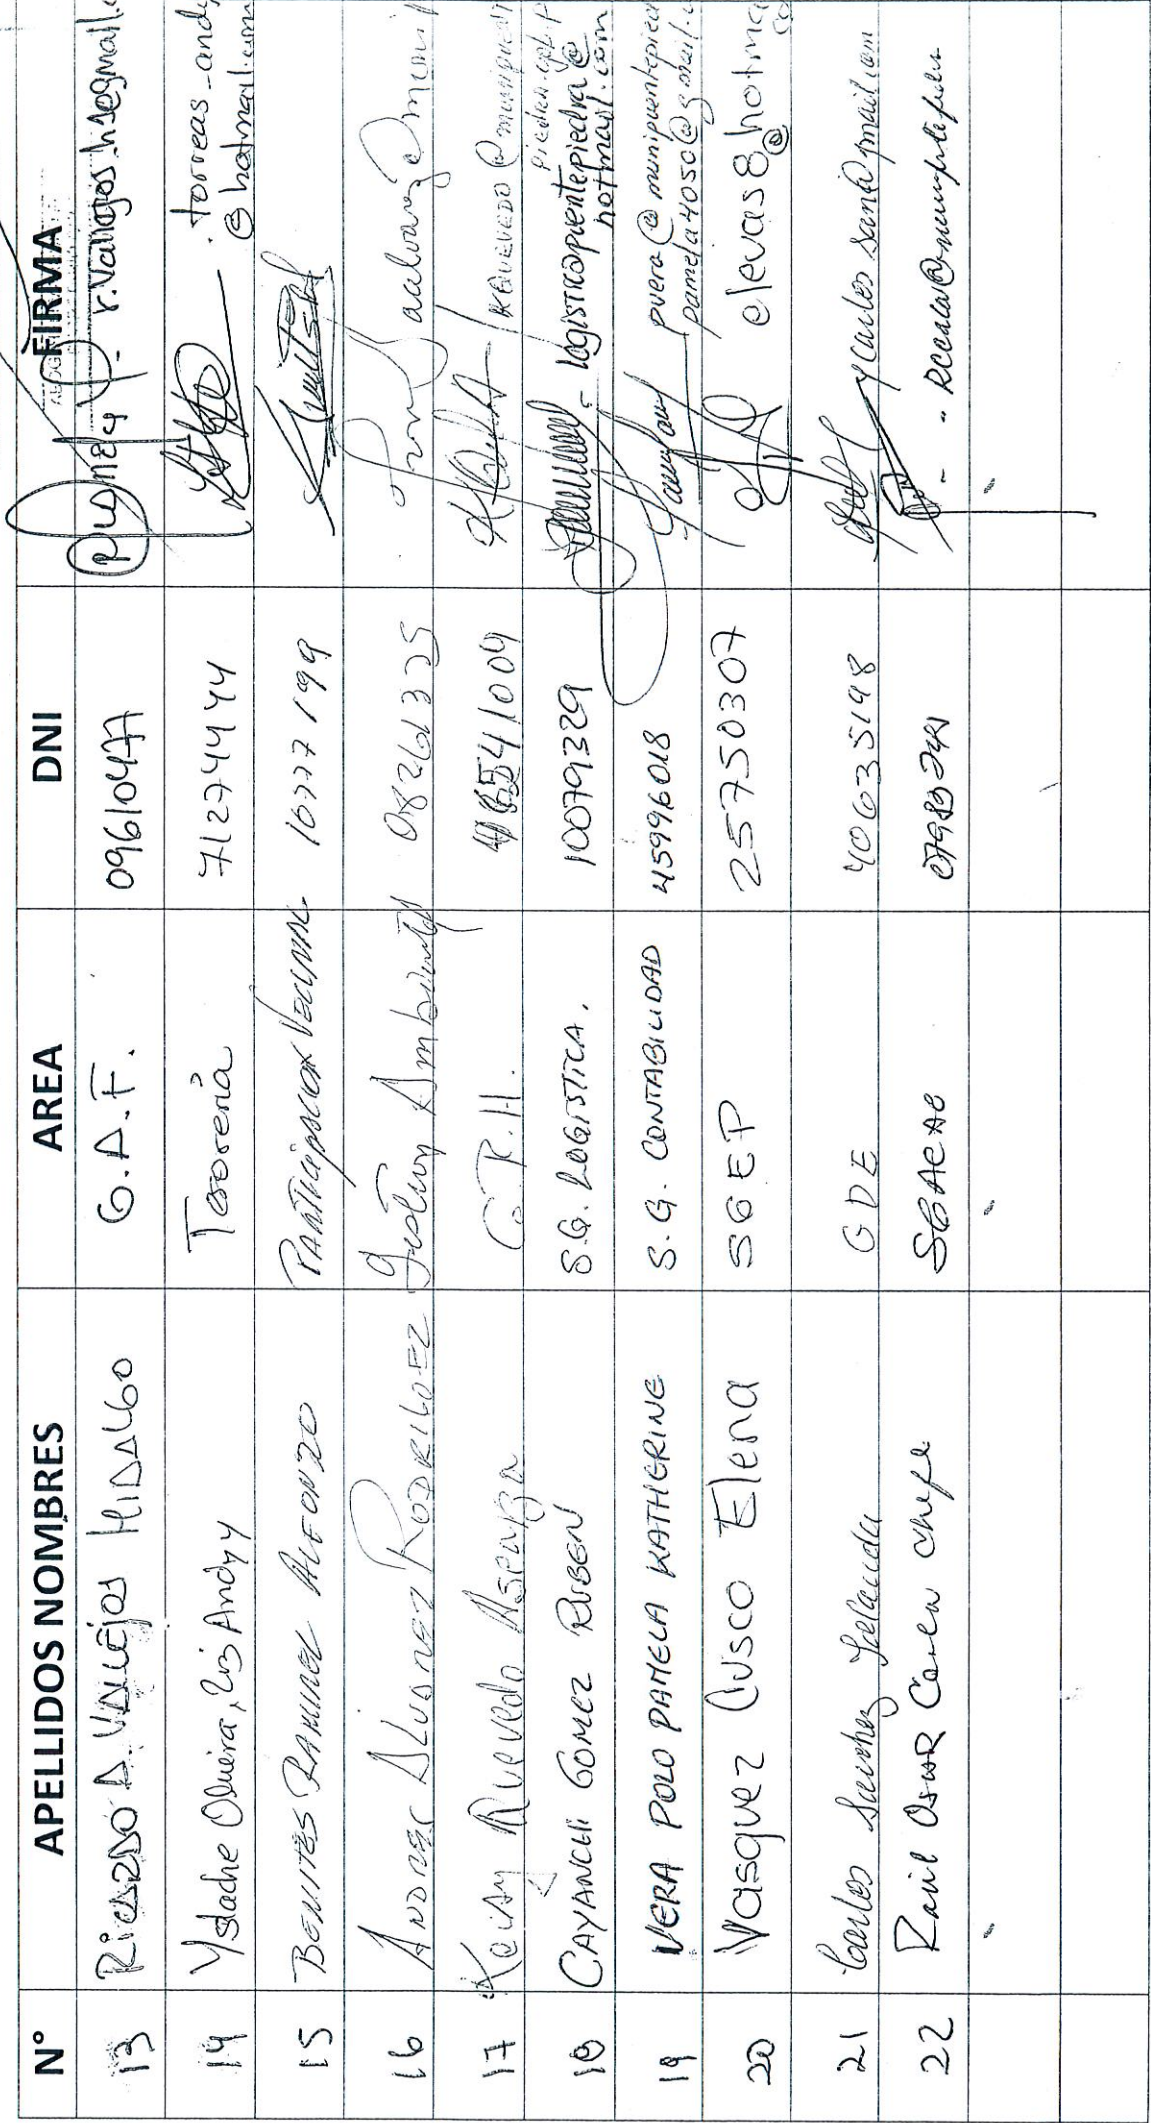 N° APELLIDOS NOMBRES AREA DNI FIRMA
13 Ricardo A. Vallejos Hidalgo G.A.F. 09610477
14 Ystache Olivera, Luis Andyy Tesorería 71274444 torreas_andy
@ hotmail.com
15 BENITES RAMIREZ ALFONZO PARTICIPACION VECINAL 16777199
16 ANDRES ALVAREZ RODRIGUEZ Gestion Ambiental 08261335 aalvarez@muni
17 Keisy Quevedo Ascarza G.R.H. 41009 KQUEVEDO @ munipuent
piedra.gob.p
18 CAYANCHI GOMEZ RUBEN S.G. LOGISTICA. 10079329 logisticapuentepiedra@
hotmail.com
19 VERA POLO PAMELA KATHERINE S.G. CONTABILIDAD 45996018 pvera@munipuentepied
pamela4050@gmail.c
20 Vasquez Cusco Elena SGEP 25750307 elevas8@hotma
co
21 Carlos Sanchez Yolanda GDE 40635198 ycarlos sana@gmail.com
22 Raul Oscar Ccala SGACAO